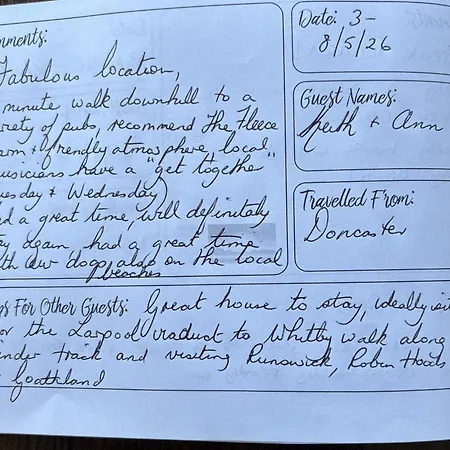 mments:
Fabulous location,
minute walk downhill to a
riety of pubs, recommend The Fleece
arm + friendly atmosphere, local
usicians have a "get together"
uesday & Wednesday
d a great time, will definitaly
y again had a great time
th our dogs, also on the local
beaches
Date: 3-
8/5/26
Guest Names:
Keith + Ann
Travelled From:
Doncaster
s For Other Guests: Great house to stay, ideally sit
or the Larpool viaduct to Whitby walk along
inder track and visiting Runswick, Robin Hoods
Goathland